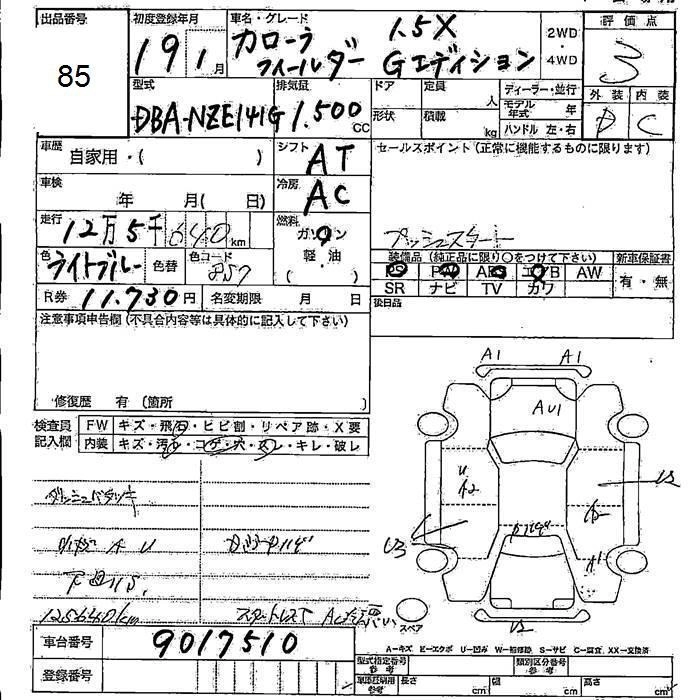 出品番号
85
初度登録年月
19 1月
車名・グレード
カローラ
フィールダー
1.5X
Gエディション
2WD
・
4WD
評価点
3
型式
DBA-NZE141G
排気量
1.500 CC
ドア
定員
人
形状
積載
kg
ディーラー・並行
モデル年式
年
ハンドル 左・右
外装
内装
C
車歴
自家用・( )
シフト
AT
車検
年 月( 日)
冷房
AC
走行
12万5千640km
燃料
ガソリン
軽油
( )
色
ライトブルー
色替
色コード
R券
11.730円
名変期限
月 日
セールスポイント(正常に機能するものに限ります)
プッシュスタート
装備品(純正品に限り○をつけて下さい)
新車保証書
PS PW ABS エアB AW
SR ナビ TV カワ
有・無
後日品
注意事項申告欄(不具合内容等は具体的に記入して下さい)
修復歴 有(箇所 )
検査員
記入欄
FW キズ・飛石・ヒビ割・リペア跡・X要
内装 キズ・汚・コゲ・穴・スレ・キレ・破レ
125640km
A1 A1
AU1
U
A2
U3
A1
U2
スペア
A-キズ E-エクボ U-凹み W-補修跡 S-サビ C-腐食 XX-交換済
車台番号
9017510
登録番号
型式指定番号
参考
類別区分番号
参考
車庫証明用
参考
長さ cm
幅 cm
高さ cm